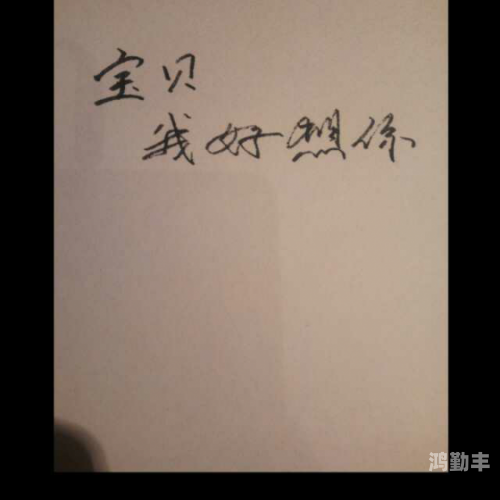 宝贝
我好想你
鸿勤丰